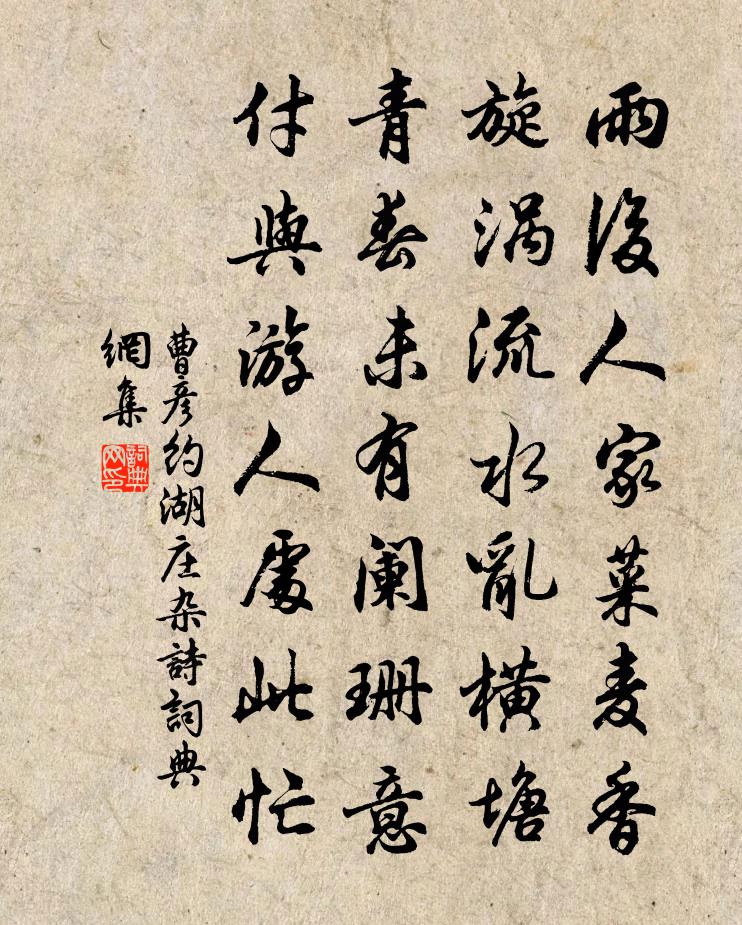 雨後人家菜麦香
旋涡流水亂横塘
青春未有阑珊意
付與游人處此忙
曹彦约湖庄杂詩詞典
網集
詞典网印